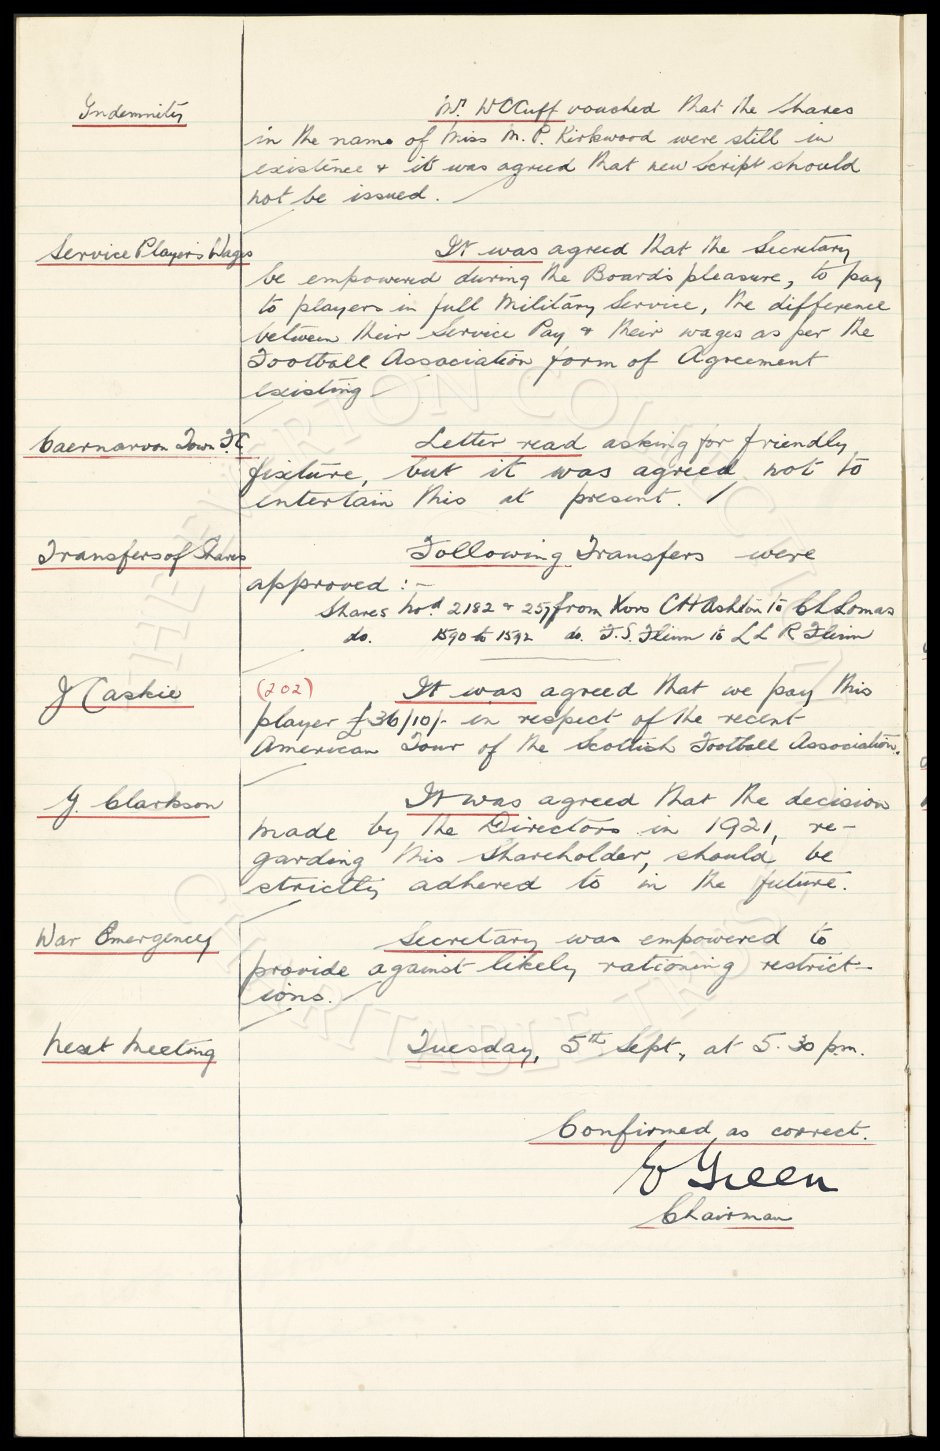 Indemnity
Mr. W C Cuff vouched that the Shares
in the name of Miss M. P. Kirkwood were still in
existence & it was agreed that new Script should
not be issued.
Service Player's Wages
It was agreed that the Secretary
be empowered during the Board's pleasure, to pay
to players in full Military Service, the difference
between their Service Pay & their wages as per the
Football Association form of Agreement
existing
Caernarvon Town F.C.
Letter read asking for friendly
fixture, but it was agreed not to
entertain this at present.
Transfers of Shares
Following Transfers were
approved :-
Shares Nos 2182 & 257 from Xors C H Ashton to C L Lomas
do. 1590 to 1592 do. F. S. Flinn to L L R Flinn
J Caskie
(202)
It was agreed that we pay this
player £36/10/- in respect of the recent
American Tour of the Scottish Football Association.
G. Clarkson
It was agreed that the decision
made by the Directors in 1921, re-
garding this Shareholder, should be
strictly adhered to in the future.
War Emergency
Secretary was empowered to
provide against likely rationing restrict-
ions.
Next Meeting
Tuesday, 5th Sept, at 5.30 p.m.
Confirmed as correct.
E Green
Chairman
THE EVERTON COLLECTION
CHARITABLE TRUST